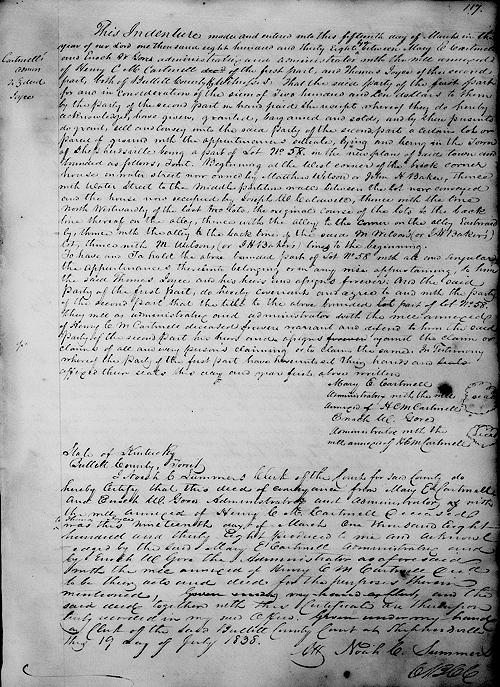 117.
This Indenture made and entered into this fifteenth day of March in the
year of our Lord one thousand eight hundred and thirty Eight between Mary E Cartmell
and Enoch W. Gore administratrix and administrator with the will annexed
of Henry C M. Cartmell decd of the first part, and Thomas Joyce of the second
part, both of Bullitt County &
That the said party of the first part
for and in Consideration of the sum of
hundred and
dollars to them
by the party of the second part in hand paid the receipt whereof they do hereby
acknowledge, have given, granted, bargained and sold, and by these presents
do grant, sell and convey unto the said party of the second part a certain lot or
parcel of ground with the appurtenances situate, lying and being in the Town
of Shepherdsville being a part of Lot No 58. in the plan of said town and
bounded as follows, to wit. Beginning at the West corner of the brick corner
house on water street now owned by Matthew Wilson or John H Baker, thence
with Water Street to the Middle partition made between the lot now conveyed
and the house now occupied by Joseph W Caldwell, thence with the line
North Westwardly of the
the original course of the lots to the back
line thereof on the alley, thence with the alley to the corner on the alley Eastward
ly, thence with the alley to the back line of the said M. Wilsons (or J H Bakers)
lot, thence with M Wilsons, (or J H Bakers) lines to the beginning.
To have and To hold the above bounded part of Lot No 58 with all and singular
the appurtenances thereunto belonging or in any wise appertaining, to him
the said Thomas Joyce and his heirs and assigns forever. And the said
party of the first part, do hereby covenant and agree to and with the party
of the second part that the title to the above bounded part of Lot No 58.
they will as administratrix and administrator with the will annexed
of Henry C M Cartmell deceased forever warrant and defend to him the said
party of the second part his heirs and assigns forever against the claim or
claims of all and every person claiming or to claim the same. In Testimony
whereof the party of the first part have hereunto set their hands and seals
affixed their seals this day and year first above written
Mary E Cartmell
administratrix with the will
annexed of H C M Cartmell
Enoch W. Gore
administrator with the
will annexed of H C M Cartmell
State of Kentucky
Bullitt County, Towit
I Noah C Summers Clerk of the Court for said County do
hereby Certify that this deed of conveyance from Mary E Cartmell
and Enoch W. Gore Administratrix and administrator with
the will annexed of Henry C M. Cartmell deceased
to Thomas Joyce
was this nineteenth day of March One thousand Eight
hundred and thirty Eight produced to me and acknowl
edged by the said Mary E Cartmell administratrix and
by Enoch W. Gore the Administrator as aforesaid
with the will annexed of Henry C M Cartmell decd
to be their acts and deed for the purposes therein
mentioned, and the
said deed together with this Certificate are thereupon
duly recorded in my said office. Given under my hand
as Clerk of the said Bullitt County Court at Shepherdsville
this 19 day of July 1838.
Att Noah C. Summers
C B C C